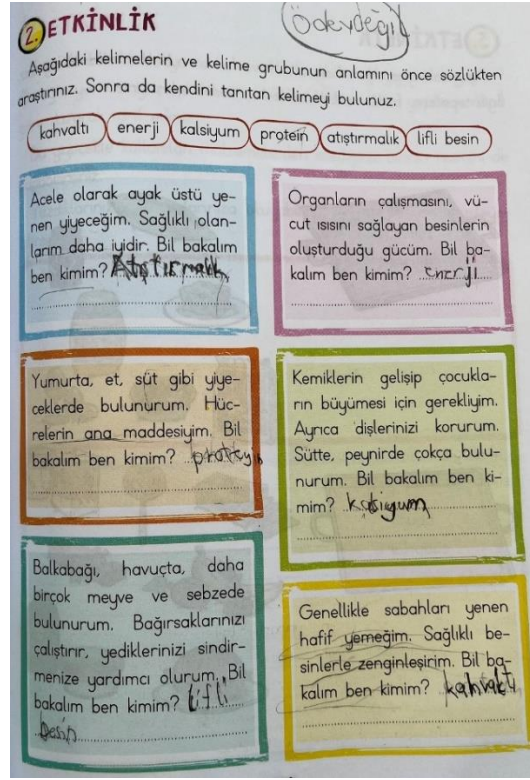 2. ETKİNLİK
Ödevdeğil
Aşağıdaki kelimelerin ve kelime grubunun anlamını önce sözlükten
araştırınız. Sonra da kendini tanıtan kelimeyi bulunuz.
kahvaltı enerji kalsiyum protein atıştırmalık lifli besin
Acele olarak ayak üstü ye-
nen yiyeceğim. Sağlıklı olan-
larım daha iyidir. Bil bakalım
ben kimim? Atıştırmalık
Organların çalışmasını, vü-
cut ısısını sağlayan besinlerin
oluşturduğu gücüm. Bil ba-
kalım ben kimim? enerji
Yumurta, et, süt gibi yiye-
ceklerde bulunurum. Hüc-
relerin ana maddesiyim. Bil
bakalım ben kimim? proteyin
Kemiklerin gelişip çocukla-
rın büyümesi için gerekliyim.
Ayrıca dişlerinizi korurum.
Sütte, peynirde çokça bulu-
nurum. Bil bakalım ben ki-
mim? kalsiyum
Balkabağı, havuçta, daha
birçok meyve ve sebzede
bulunurum. Bağırsaklarınızı
çalıştırır, yediklerinizi sindir-
menize yardımcı olurum. Bil
bakalım ben kimim? lifli
besin
Genellikle sabahları yenen
hafif yemeğim. Sağlıklı be-
sinlerle zenginleşirim. Bil ba-
kalım ben kimim? kahvaltı